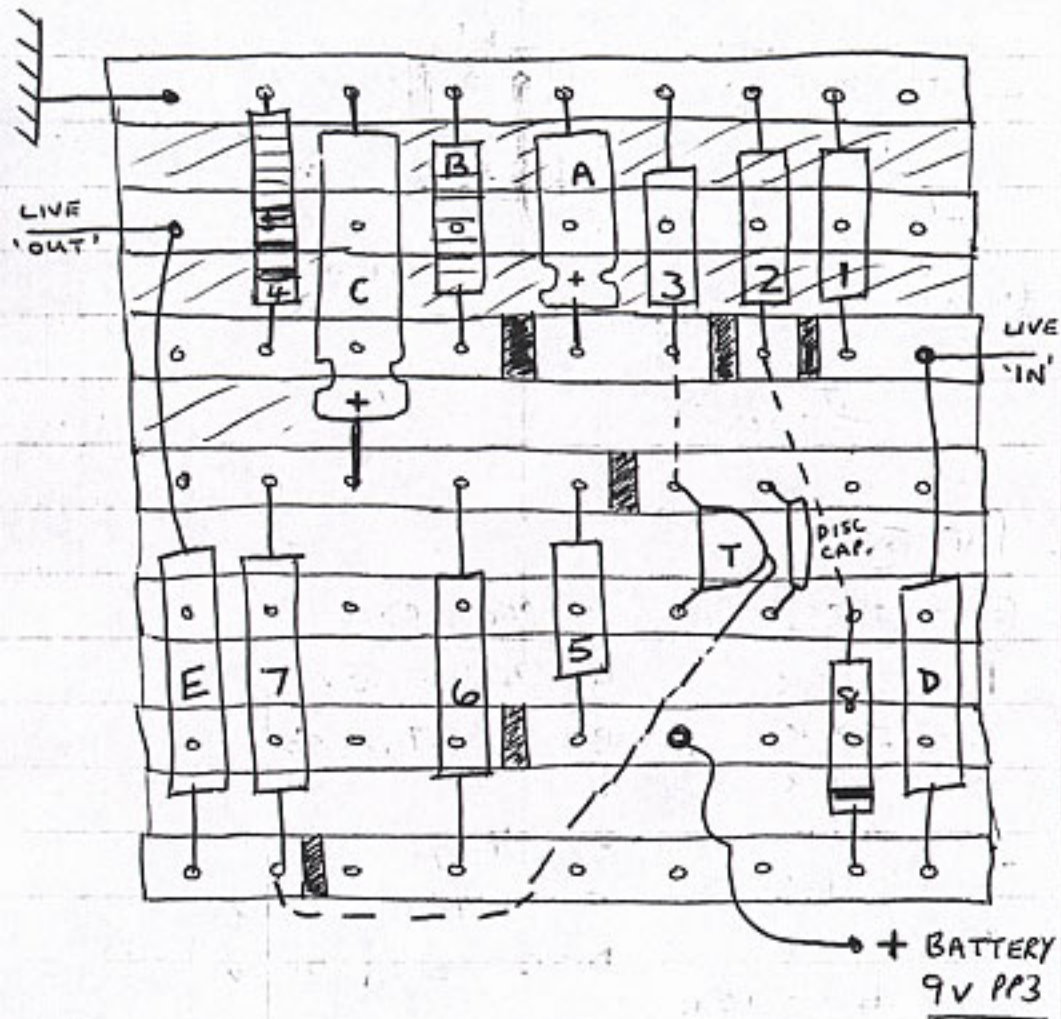 B
A
LIVE
'OUT'
4
C
+
3
2
1
LIVE
'IN'
+
T
DISC
CAP.
E
7
6
5
8
D
+ BATTERY
9V PP3